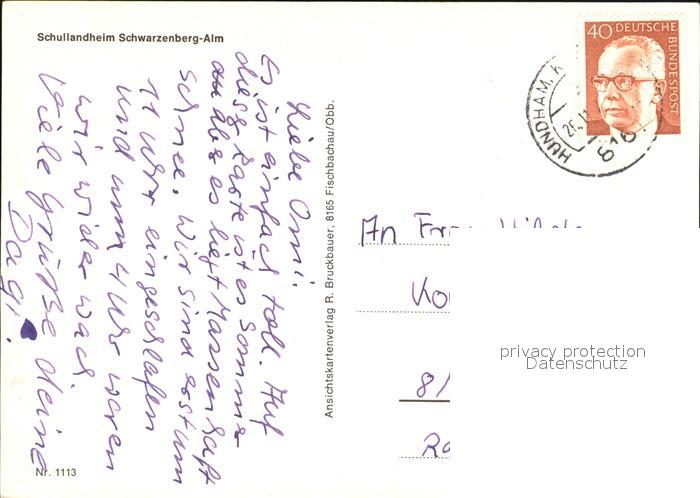 Schullandheim Schwarzenberg-Alm
Liebe Omi!
Es ist einfach toll. Auf
dieser Karte ist es Sommer
aber es liegt Massenhaft
Schnee. Wir sind erst um
11 Uhr eingeschlafen
und um 4 Uhr waren
wir wieder wach
Viele Grüße deine
Dagi.
Nr. 1113
Ansichtskartenverlag R. Bruckbauer, 8165 Fischbachau/Obb.
40 DEUTSCHE
BUNDESPOST
HUNDHAM, K
26.11
816
An
8/
privacy protection
Datenschutz